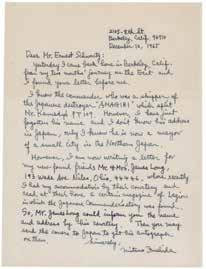 2105-8th St
Berkeley, Calif. 94710
December 10, 1965
Dear Mr. Ernest Schwartz:
Yesterday I came back home in Berkeley, Calif.
from my two months' journey on the East and
I found your letter before me.
I know the commander who was a skipper of
the Japanese destroyer "AMAGIRI" which split
Mr. Kennedy's PT 109. However, I have just
forgotten his name and I don't know his address
in Japan, only I know he is now a mayor
of a small city in the Northern Japan.
However, I am now writing a letter, for
my new found friends Mr & Mrs. James Long,
193 Wade Ave Niles, Ohio, 44446, where recently
I had my accommodation by their courtesy and
read at their home a certain magazine of
in which the Japanese Commander's story was found.
So, Mr. James Long could inform you the name
and address by his courtesy. Then you may
send the covers to Japan to get his autograph
on them.
Sincerely,